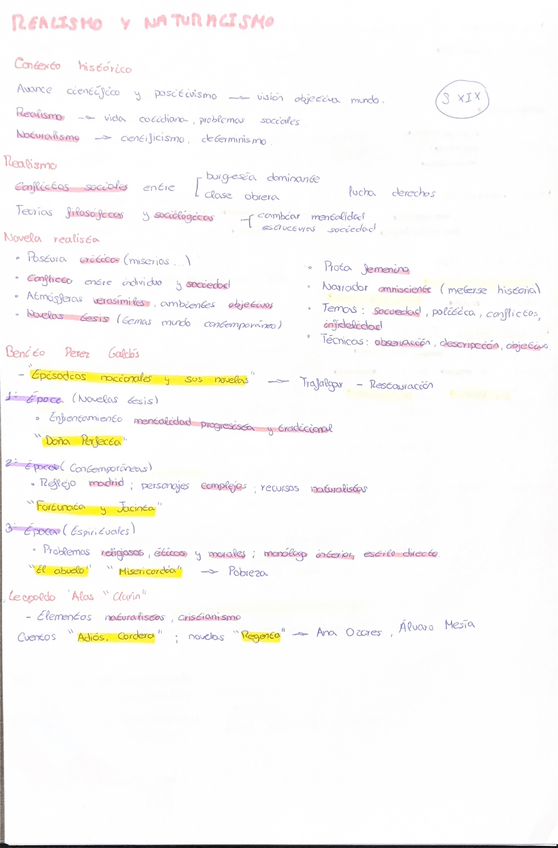 REALISMO Y NATURALISMO
Contexto histórico
Avance científico y positivismo → visión objetiva mundo.
S XIX
Realismo → vida cotidiana, problemas sociales
Naturalismo → cientificismo, determinismo.
Realismo
Conflictos sociales entre [ burgesía dominante
clase obrera
lucha derechos
Teorías filosóficas y sociológicas { cambiar mentalidad
estructuras sociedad.
Novela realista
• Postura crítica (miserias...)
• Conflicto entre individuo y sociedad
• Atmósferas verosímiles, ambientes objetivos
• Novelas tesis (temas mundo contemporáneo)
• Prota femenina
• Narrador omnisciente (meterse historia)
• Temas: sociedad, política, conflictos,
infidelidad
• Técnicas: observación, descripción, objetivo.
Benito Perez Galdós
- "Episodios nacionales y sus novelas" → Trafalgar - Restauración
1ª Época (Novelas tesis)
• Enfrentamiento mentalidad progresista y tradicional
"Doña Perfecta"
2ª Época (Contemporáneas)
• Reflejo madrid; personajes complejos; recursos naturalistas
"Fortunata y Jacinta"
3ª Época (Espirituales)
• Problemas religiosos, éticos y morales; monólogo interior, estilo directo
"El abuelo" "Misericordia" → Pobreza
Leopoldo Alas "Clarín"
- Elementos naturalistas, cristianismo
Cuentos "Adiós, Cordera"; novelas "Regenta" → Ana Ozores, Álvaro Mesía